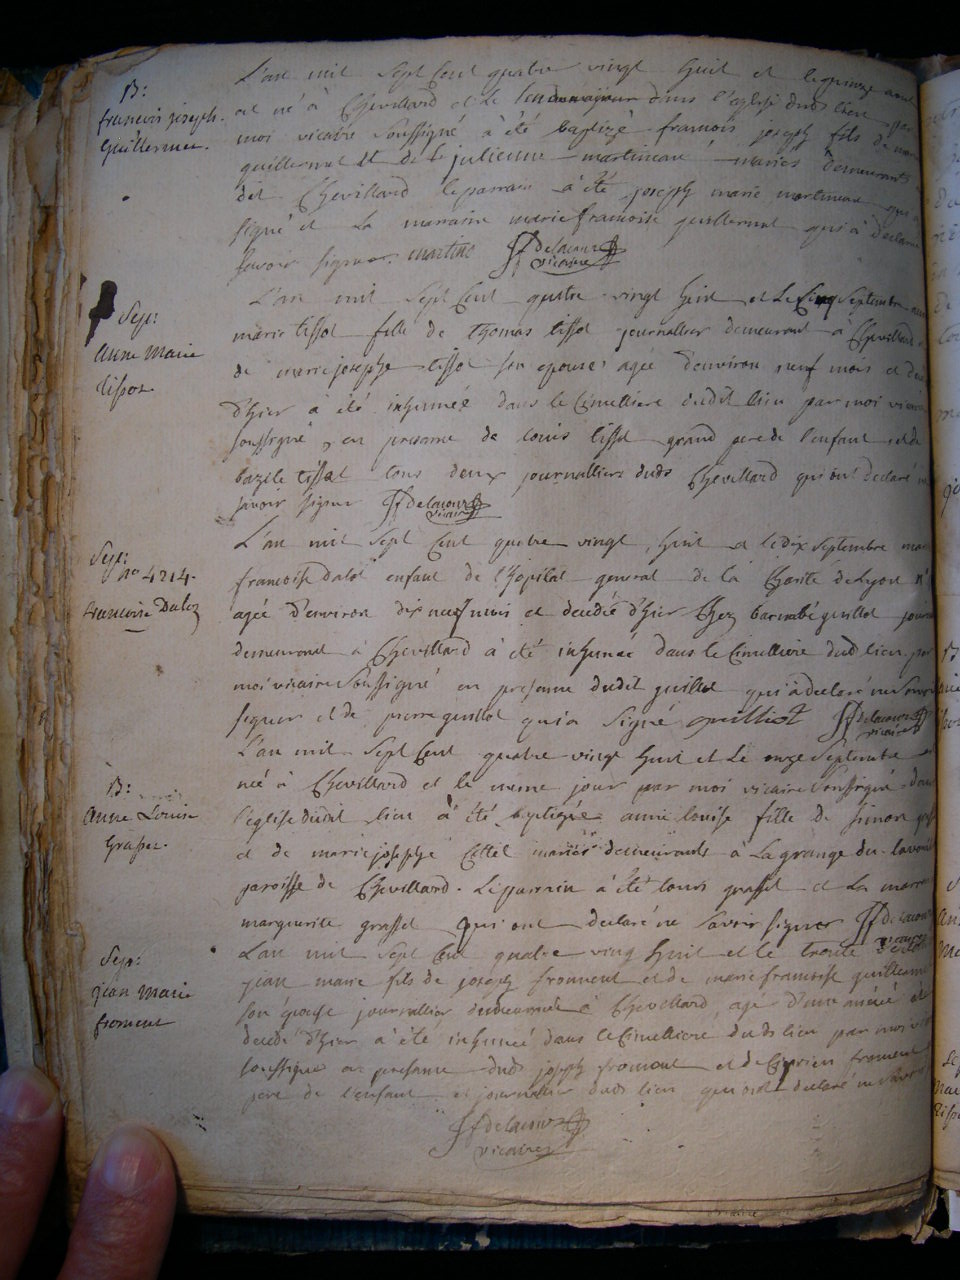 L'an mil Sept Cent quatre vingt huit et le quinze aout
B:
francois joseph
Guillermet.
est né à Chevillard et le lendemain dans l'eglise dudt lieu par
moi vicaire soussigné à été baptizé francois joseph fils de
guillermet et de julienne martineau mariés demeurants
dit Chevillard le parrain à été joseph marie martineau qui a
signé et la marraine marie francoise guillermet qui à declaré
savoir signer. martine Delacour
vicaire
L'an mil Sept Cent quatre vingt huit et le Cinq Septembre anne
Sep:
anne Marie
tissot
marie tissot fille de thomas tissot journallier demeurant à Chevillard
de marie josephe tissot son epouse agée d'environ neuf mois et
d'hier à été inhumée dans le Cimettiere dudit lieu par moi vicaire
soussigné, en presence de louis tissot grand pere de l'enfant et de
bazile tissot tous deux journalliers dudt Chevillard qui ont declaré ne
savoir signer Delacour
vicaire
L'an mil Sept Cent quatre vingt huit et le dix Septembre
Sep:
no 4214.
francoise Daloz
francoise enfant de l'hopital general de la Charité de Lyon
agée d'environ dix neuf mois et decedée d'hier Chez barnabé guillot
demeurant à Chevillard à été inhumée dans le Cimettiere dudt lieu par
moi vicaire Soussigné en presence dudit guillot qui à declaré ne savoir
signer et de pierre guillot qui a signé Delacour
vicaire
L'an mil Sept Cent quatre vingt huit et le onze Septembre est
B:
Anne Louise
Grasset.
née à Chevillard et le meme jour par moi vicaire soussigné dans
l'eglise dudit lieu à été baptizée anne louise fille de simon
et de marie josephe mariés demeurants à La grange du
paroisse de Chevillard. Le parrain à été louis grasset et la marraine
marguerite grasset qui ont declaré ne savoir signer Delacour
vicaire
L'an mil Sept Cent quatre vingt huit et le trente
Sep:
jean Marie
froment
jean marie fils de joseph froment et de marie francoise guillermet
son epouse journallier demeurant à Chevillard, agé d'une année et
decedé d'hier à été inhumé dans le Cimettiere dudt lieu par moi
soussigné en presence dudt joseph froment et de Ciprien froment
pere de l'enfant et journallier dudt lieu qui ont declaré ne savoir
Delacour
vicaire